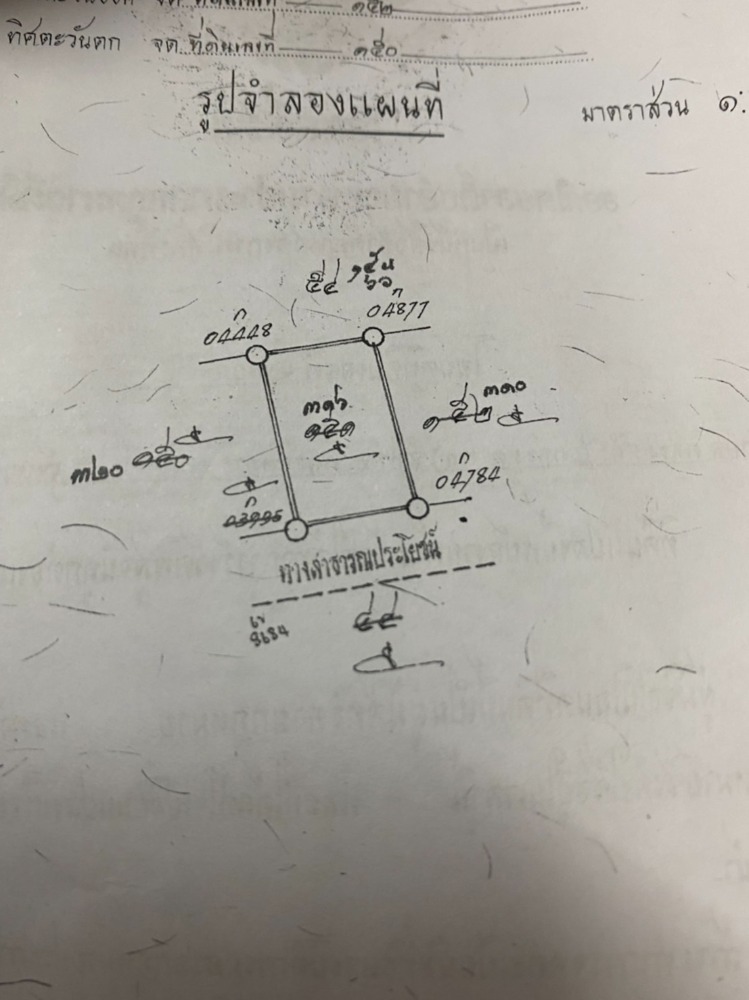 ๑๕๒
ทิศตะวันตก จด ที่ดินเลขที่ ๑๕๐
รูปจำลองแผนที่
มาตราส่วน ๑:
๕๔
ก
04448
ก
04877
๓๑๖
๑๕๑
๑๕๒ ๓๑๐
๓๒๐ ๑๕๐
ก
03995
ก
04784
ทางสาธารณประโยชน์
8684
๔๔